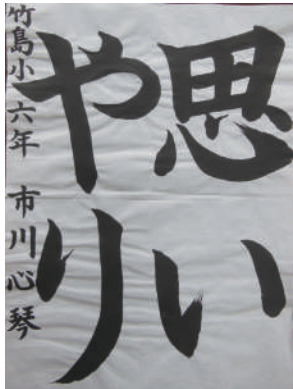 思い
やり
竹島小六年 市川心琴